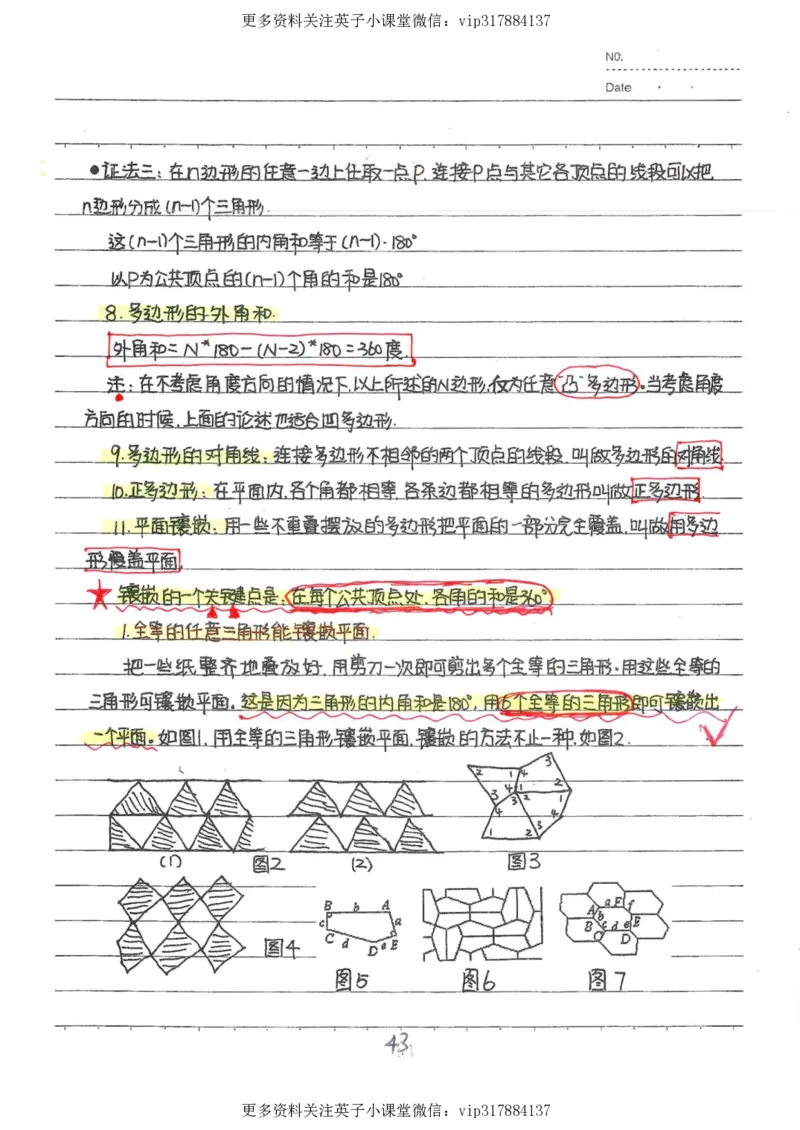 更多资料关注英子小课堂微信：vip317884137
NO.
Date
●证法三：在n边形的任意一边上任取一点P，连接P点与其它各顶点的线段可以把
n边形分成(n-1)个三角形.
这(n-1)个三角形的内角和等于(n-1)·180°
以P为公共顶点的(n-1)个角的和是180°
8.多边形的外角和.
外角和=N*180-(N-2)*180=360度.
注：在不考虑角度方向的情况下，以上所述的N边形，仅为任意“凸”多边形。当考虑角度
方向的时候，上面的论述也适合凹多边形.
9.多边形的对角线：连接多边形不相邻的两个顶点的线段，叫做多边形的对角线
10.正多边形：在平面内，各个角都相等，各条边都相等的多边形叫做正多边形.
11.平面镶嵌：用一些不重叠摆放的多边形把平面的一部分完全覆盖，叫做用多边
形覆盖平面.
★镶嵌的一个关键点是：在每个公共顶点处，各角的和是360°
1.全等的任意三角形能镶嵌平面.
把一些纸整齐地叠放好，用剪刀一次即可剪出多个全等的三角形.用这些全等的
三角形可镶嵌平面。这是因为三角形的内角和是180°，用6个全等的三角形即可镶嵌出
一个平面。如图1.用全等的三角形镶嵌平面，镶嵌的方法不止一种，如图2.
2 1 4 3
3 4 1 2
4 3 2 1
1 2 3 4
(1) 图2 (2) 图3
B b A
c a
C d D e E
图4
a F f
A b
B c d e E
C D
图5 图6 图7
43
更多资料关注英子小课堂微信：vip317884137